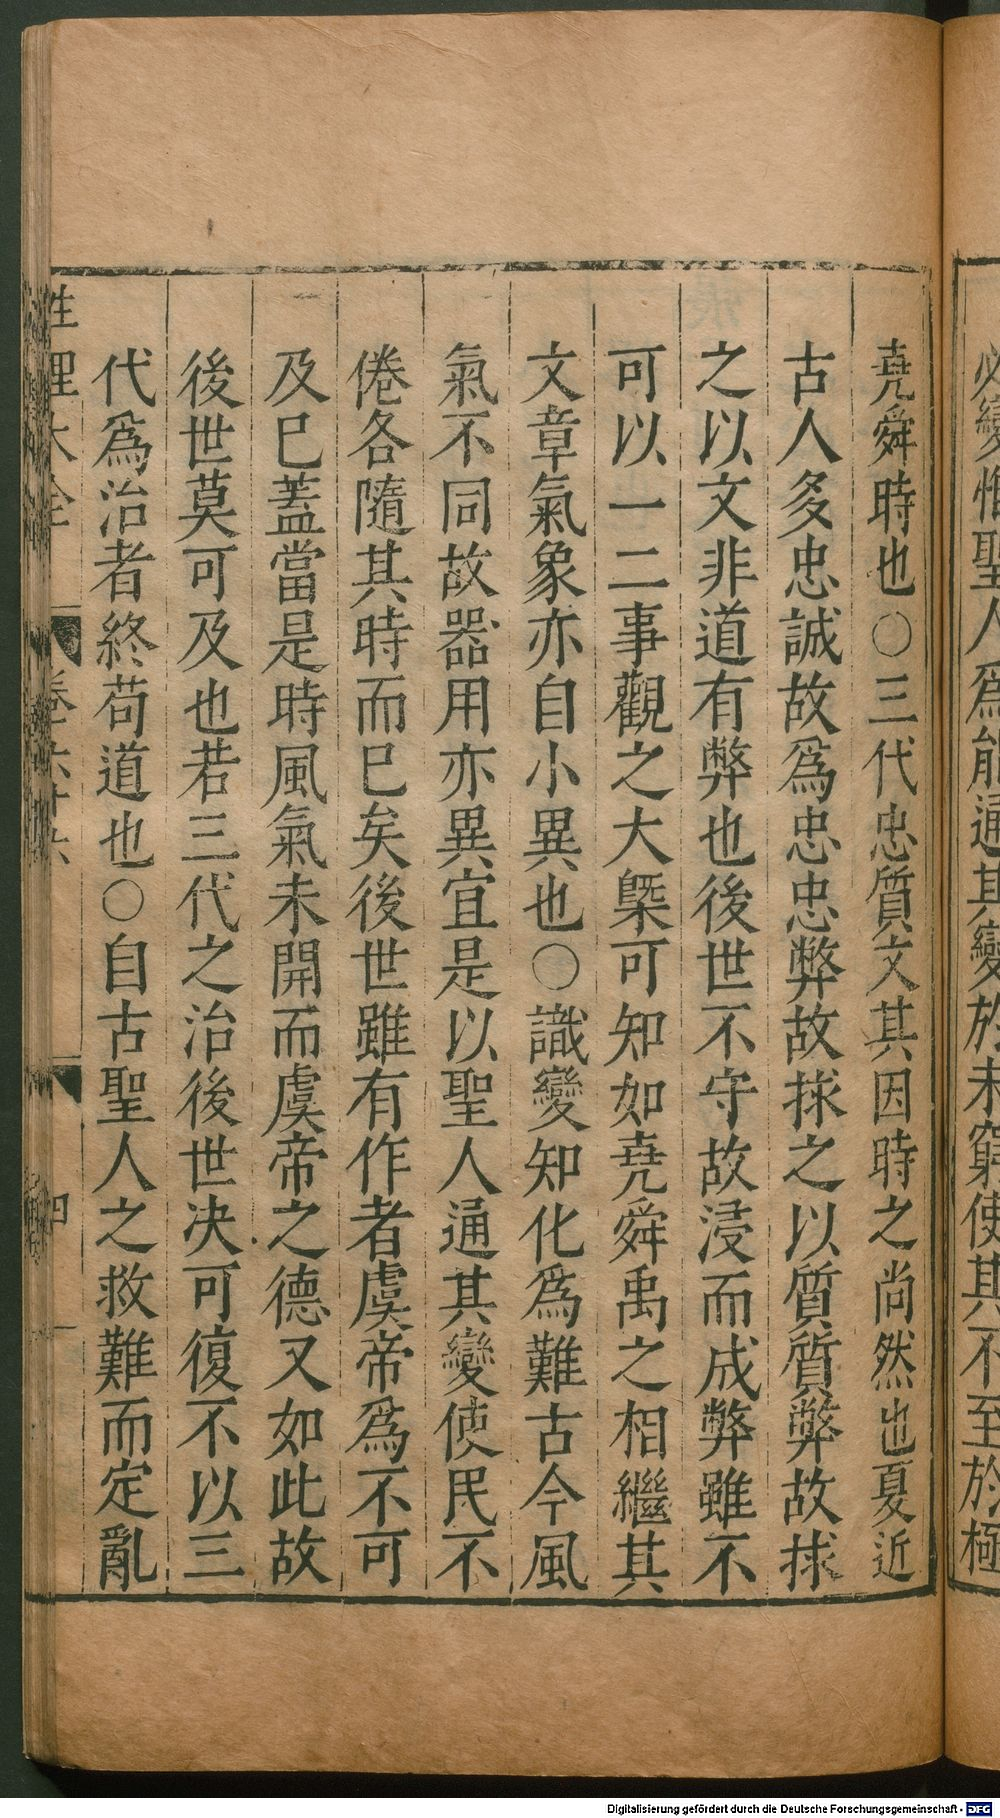 必變惟聖人爲能通其變於未窮使其不至於極
堯舜時也○三代忠質文其因時之尚然也夏近
古人多忠誠故爲忠忠弊故捄之以質質弊故捄
之以文非道有弊也後世不守故浸而成弊雖不
可以一二事觀之大槩可知如堯舜禹之相繼其
文章氣象亦自小異也○識變知化爲難古今風
氣不同故器用亦異宜是以聖人通其變使民不
倦各隨其時而已矣後世雖有作者虞帝爲不可
及已蓋當是時風氣未開而虞帝之德又如此故
後世莫可及也若三代之治後世决可復不以三
代爲治者終苟道也○自古聖人之救難而定亂
性理大全 卷六十六 四
Digitalisierung gefördert durch die Deutsche Forschungsgemeinschaft - DFG